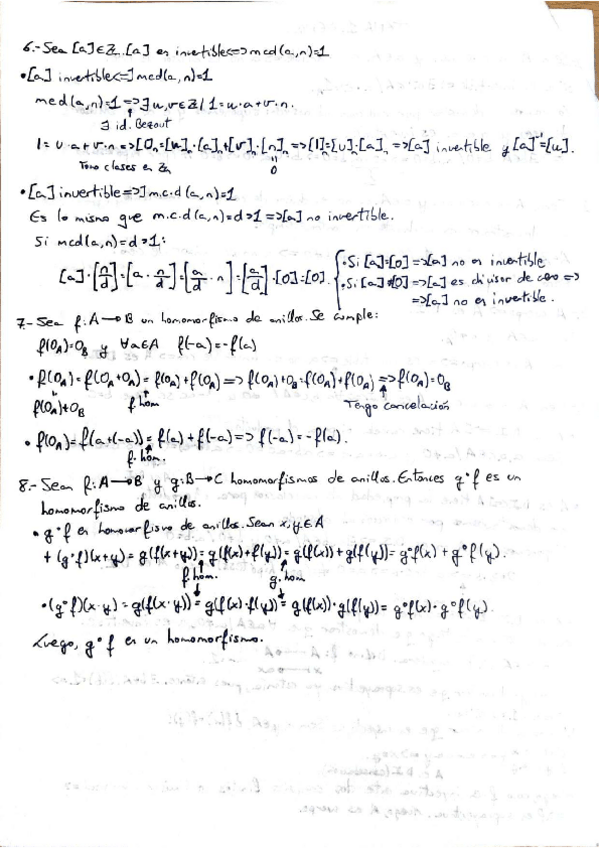 6.- Sea [a]∈Zₙ. [a] es invertible<=>mcd(a,n)=1
•[a] invertible<=]mcd(a,n)=1
mcd(a,n)=1 =>∃u,v∈Z/1=u·a+v·n.
∃ id. Bezout
1=u·a+v·n=>[1]ₙ=[u]ₙ·[a]ₙ+[v]ₙ·[n]ₙ=>[1]ₙ=[u]ₙ·[a]ₙ=>[a] invertible y [a]⁻¹=[u].
Tomo clases en Zₙ
0
•[a] invertible=>]m.c.d(a,n)=1
Es lo mismo que m.c.d(a,n)=d>1=>[a] no invertible.
Si mcd(a,n)=d>1:
[a]·[n/d]=[a·n/d]=[a/d·n]=[a/d]·[0]=[0].
•Si [a]=[0]=>[a] no es invertible
•Si [a]≠[0]=>[a] es divisor de cero=>
=>[a] no es invertible.
7.- Sea f:A→B un homomorfismo de anillos. Se cumple:
f(0_A)=0_B y ∀a∈A f(-a)=-f(a)
•f(0_A)=f(0_A+0_A)=f(0_A)+f(0_A)=>f(0_A)+0_B=f(0_A)+f(0_A)=>f(0_A)=0_B
f(0_A)+0_B f hom Tengo cancelación
•f(0_A)=f(a+(-a))=f(a)+f(-a)=>f(-a)=-f(a).
f. hom.
8.- Sean f:A→B y g:B→C homomorfismos de anillos. Entonces g∘f es un
homomorfismo de anillos.
•g∘f es homomorfismo de anillos. Sean x,y∈A
+(g∘f)(x+y)=g(f(x+y))=g(f(x)+f(y))=g(f(x))+g(f(y))=g∘f(x)+g∘f(y).
f hom. g. hom
•(g∘f)(x·y)=g(f(x·y))=g(f(x)·f(y))=g(f(x))·g(f(y))=g∘f(x)·g∘f(y).
Luego, g∘f es un homomorfismo.